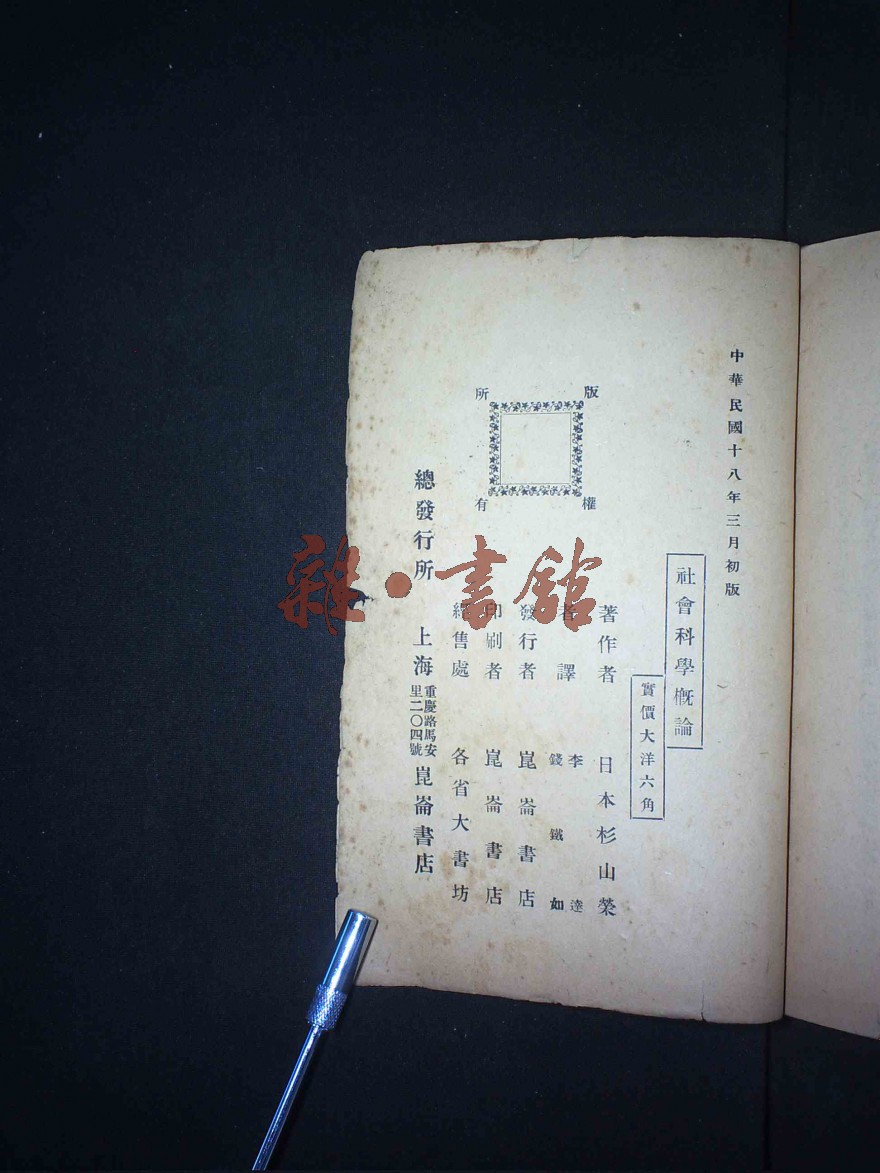 中華民國十八年三月初版
社會科學概論
實價大洋六角
著作者 日本杉山榮
譯者 李達 錢鐵如
發行者 崑崙書店
印刷者 崑崙書店
經售處 各省大書坊
總發行所 上海重慶路馬安里二〇四號崑崙書店
版權所有
雜·書館